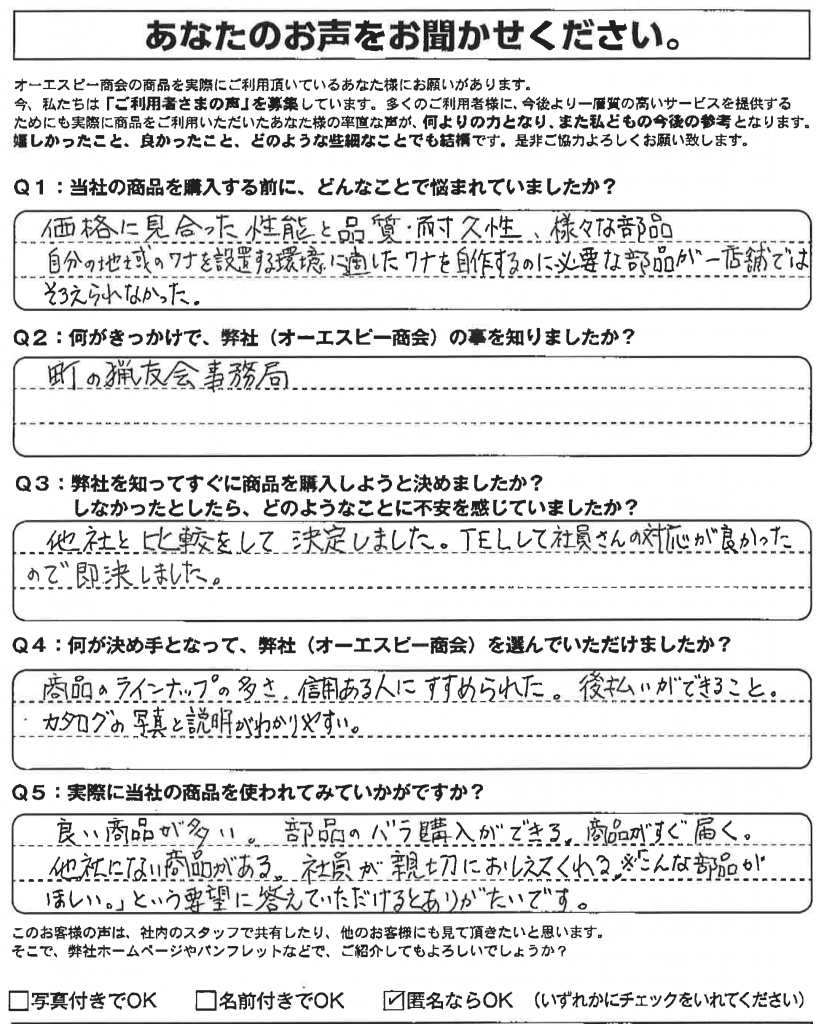 あなたのお声をお聞かせください。
オーエスピー商会の商品を実際にご利用頂いているあなた様にお願いがあります。
今、私たちは「ご利用者さまの声」を募集しています。多くのご利用者様に、今後より一層質の高いサービスを提供する
ためにも実際に商品をご利用いただいたあなた様の率直な声が、何よりの力となり、また私どもの今後の参考となります。
嬉しかったこと、良かったこと、どのような些細なことでも結構です。是非ご協力よろしくお願い致します。
Q1：当社の商品を購入する前に、どんなことで悩まれていましたか？
価格に見合った性能と品質・耐久性、様々な部品
自分の地域のワナを設置する環境に適したワナを自作するのに必要な部品が一店舗では
そろえられなかった。
Q2：何がきっかけで、弊社（オーエスピー商会）の事を知りましたか？
町の猟友会事務局
Q3：弊社を知ってすぐに商品を購入しようと決めましたか？
しなかったとしたら、どのようなことに不安を感じていましたか？
他社と比較をして決定しました。TELして社員さんの対応が良かった
ので即決しました。
Q4：何が決め手となって、弊社（オーエスピー商会）を選んでいただけましたか？
商品のラインナップの多さ、信用ある人にすすめられた。後払いができること。
カタログの写真と説明がわかりやすい。
Q5：実際に当社の商品を使われてみていかがですか？
良い商品が多い。部品のバラ購入ができる。商品がすぐ届く。
他社にない商品がある。社員が親切におしえてくれる。※「こんな部品が
ほしい。」という要望に答えていただけるとありがたいです。
このお客様の声は、社内のスタッフで共有したり、他のお客様にも見て頂きたいと思います。
そこで、弊社ホームページやパンフレットなどで、ご紹介してもよろしいでしょうか？
□写真付きでOK □名前付きでOK ☑匿名ならOK （いずれかにチェックをいれてください）